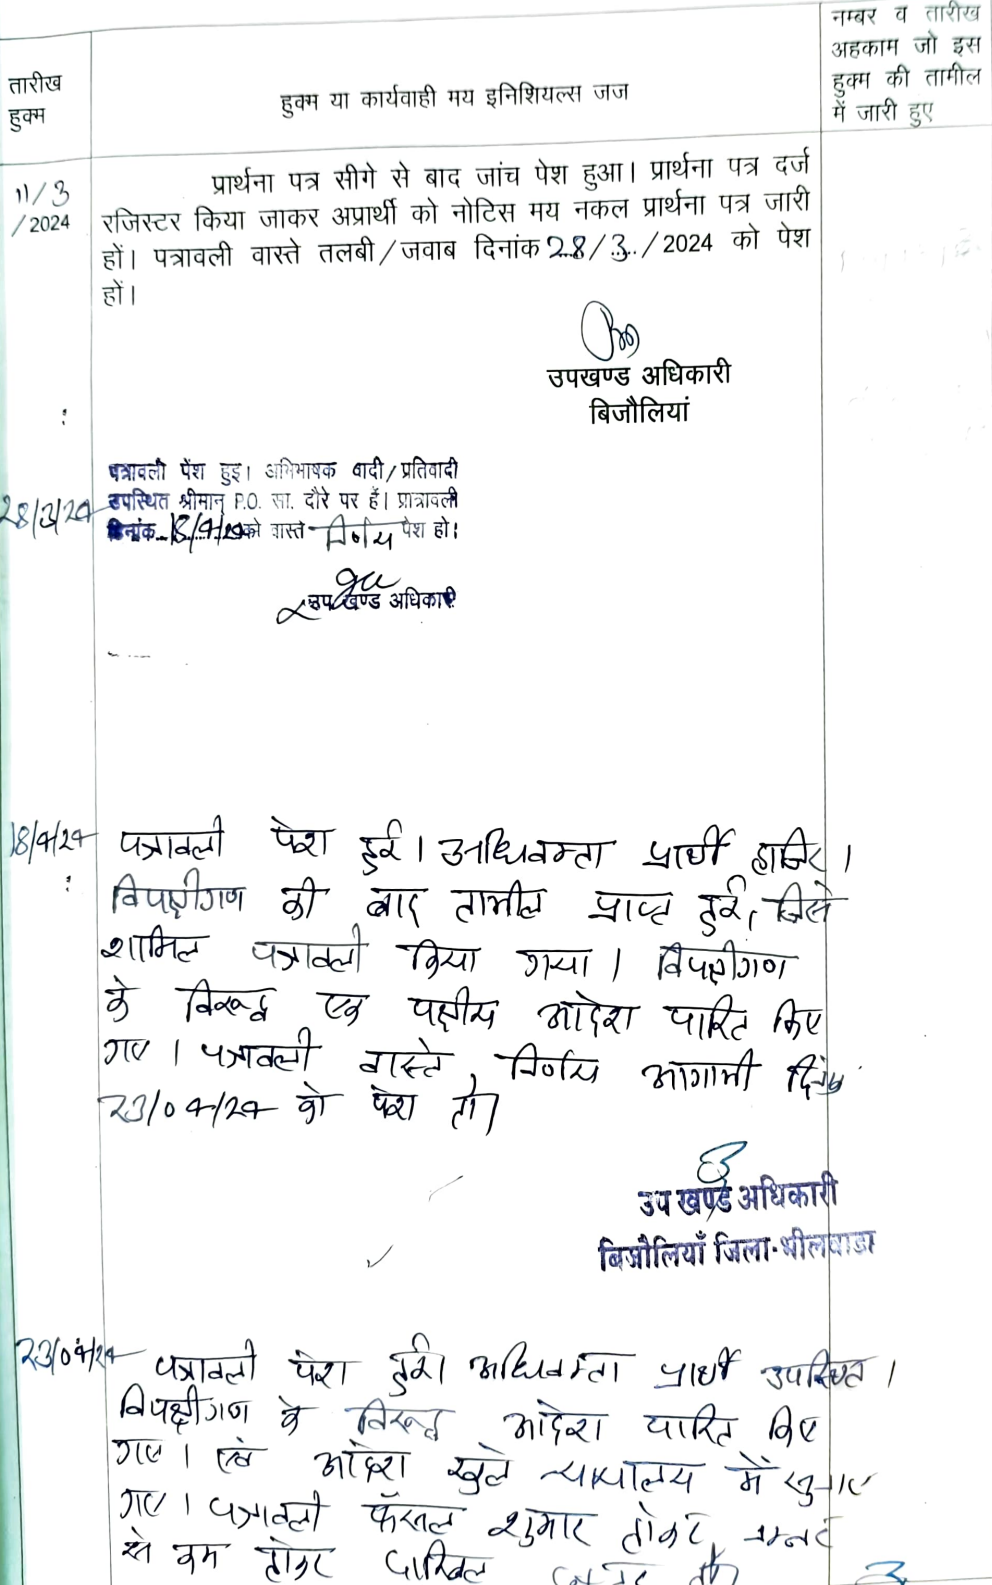 नम्बर व तारीख
अहकाम जो इस
हुक्म की तामील
में जारी हुए
तारीख
हुक्म
हुक्म या कार्यवाही मय इनिशियल्स जज
11/3
/2024
प्रार्थना पत्र सीगे से बाद जांच पेश हुआ। प्रार्थना पत्र दर्ज
रजिस्टर किया जाकर अप्रार्थी को नोटिस मय नकल प्रार्थना पत्र जारी
हों। पत्रावली वास्ते तलबी/जवाब दिनांक 28/3/2024 को पेश
हों।
उपखण्ड अधिकारी
बिजौलियां
पत्रावली पेंश हुइ। अभिभाषक वादी/प्रतिवादी
28/3/24 उपस्थित श्रीमान् P.O. सा. दौरे पर हैं। प्रात्रावली
दिनांक 18/4/24 को वास्ते निर्णय पेश हो।
उप खण्ड अधिकारी
18/4/24 पत्रावली पेश हुई। अधिवक्ता प्रार्थी हाजिर।
विपक्षीगण की बाद तामील प्राप्त हुई, जिसे
शामिल पत्रावली किया गया। विपक्षीगण
के विरूद्ध एक पक्षीय आदेश पारित किए
गए। पत्रावली वास्ते निर्णय आगामी दिनांक
23/04/24 को पेश हो।
उप खण्ड अधिकारी
बिजौलियाँ जिला-भीलवाडा
23/04/24 पत्रावली पेश हुई। अधिवक्ता प्रार्थी उपस्थित।
विपक्षीगण के विरूद्ध आदेश पारित किए
गए। एवं आदेश खुले न्यायालय में सुनाए
गए। पत्रावली फैसल शुमार होकर नम्बर
से कम होकर दाखिल